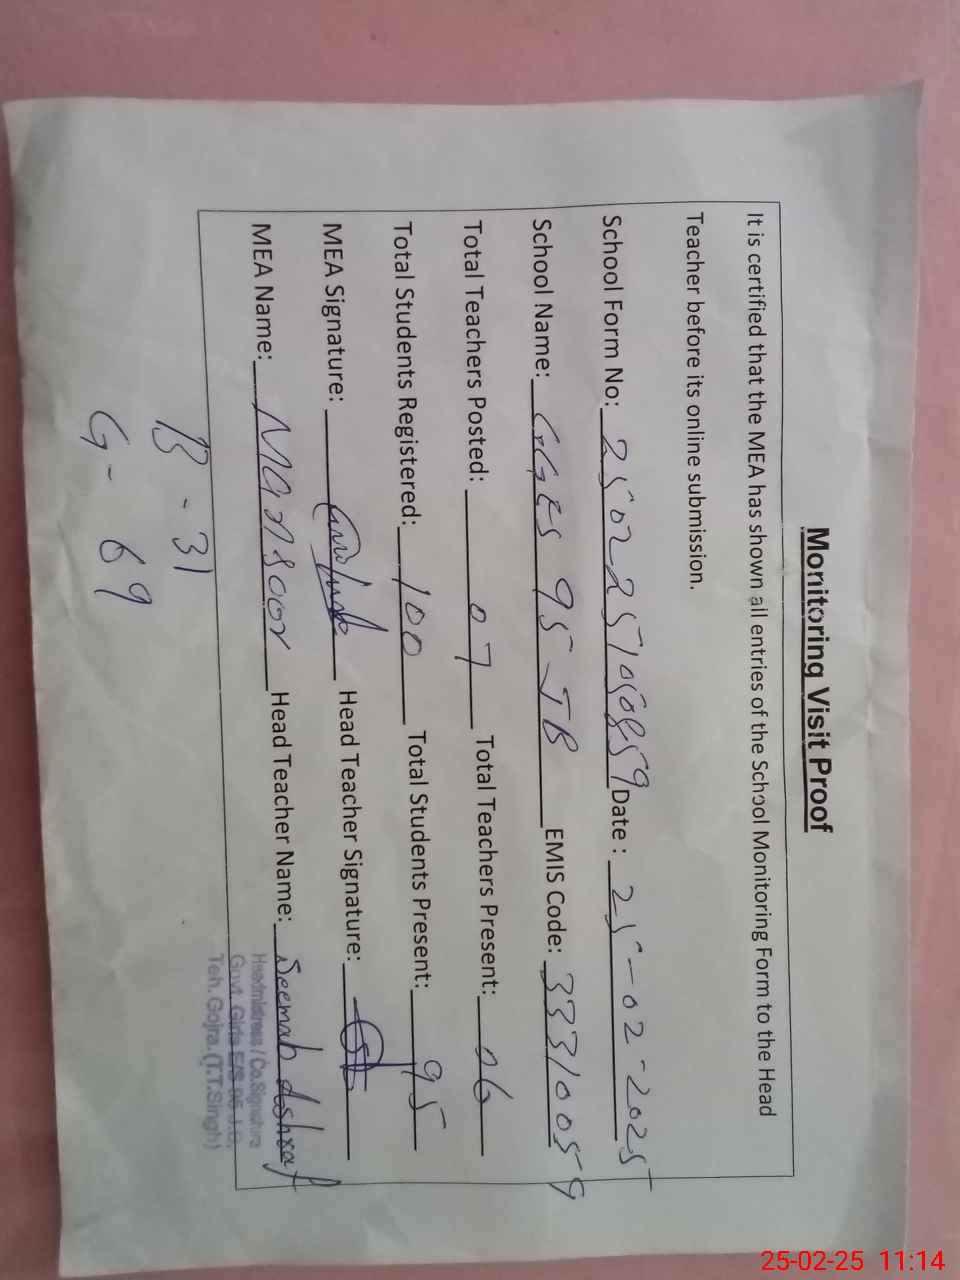 Monitoring Visit Proof
It is certified that the MEA has shown all entries of the School Monitoring Form to the Head
Teacher before its online submission.
School Form No: Date : 25-02-2025
School Name: GGES 95 JB EMIS Code: 33310059
Total Teachers Posted: 07 Total Teachers Present: 06
Total Students Registered: 100 Total Students Present: 95
MEA Signature: Head Teacher Signature:
MEA Name: Manzoor Head Teacher Name: Seemab Ashraf
Headmistress / Co.Signature
Govt. Girls E/S 95 J.B.
Teh. Gojra. (T.T.Singh)
B - 31
G - 69
25-02-25 11:14